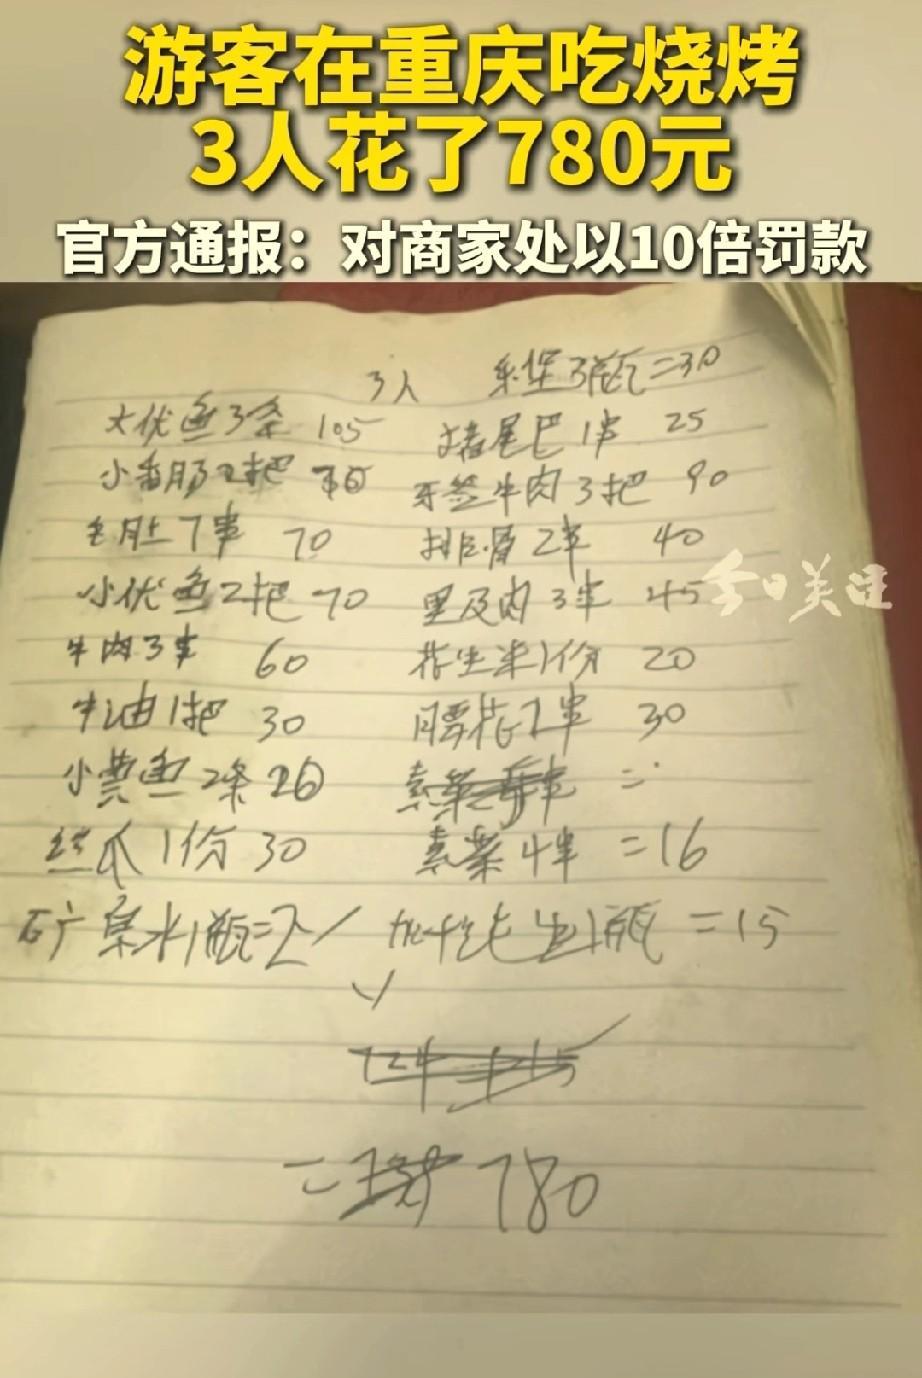 游客在重庆吃烧烤
3人花了780元
官方通报：对商家处以10倍罚款
3人 乐堡3瓶=30
大优鱼3条 105 猪尾巴1串 25
小香肠2把 牙签牛肉3把 90
毛肚7串 70 排骨2串 40
小优鱼2把 70 里及肉3串 45
今日关注
牛肉3串 60 花生米1份 20
牛油1把 30 腰花2串 30
小黄鱼2条 26 素菜 =
丝瓜1份 30 素菜4串 =16
矿泉水1瓶=2 1瓶 =15
= 780